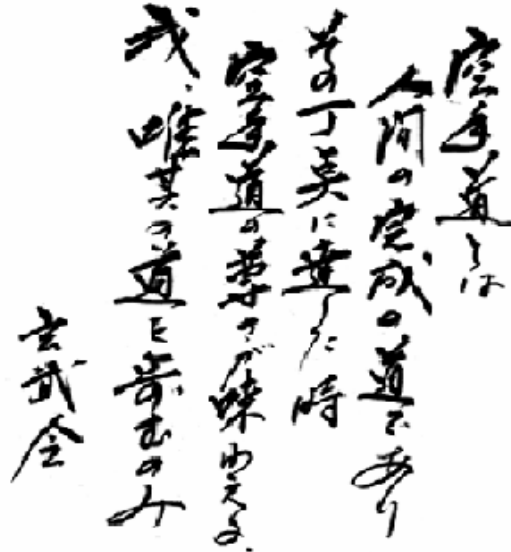 空手道とは
人間の完成の道であり
その に達した時
空手道の尊さが味わえる。
我、唯其の道を歩むのみ
玄武会